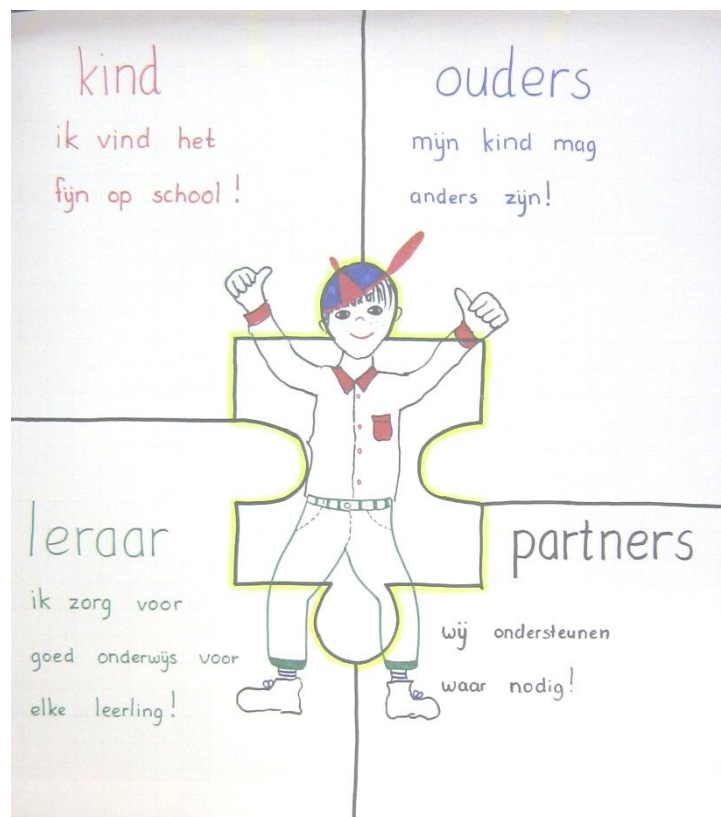 kind
ik vind het
fijn op school!
ouders
mijn kind mag
anders zijn!
leraar
ik zorg voor
goed onderwijs voor
elke leerling!
partners
wij ondersteunen
waar nodig!